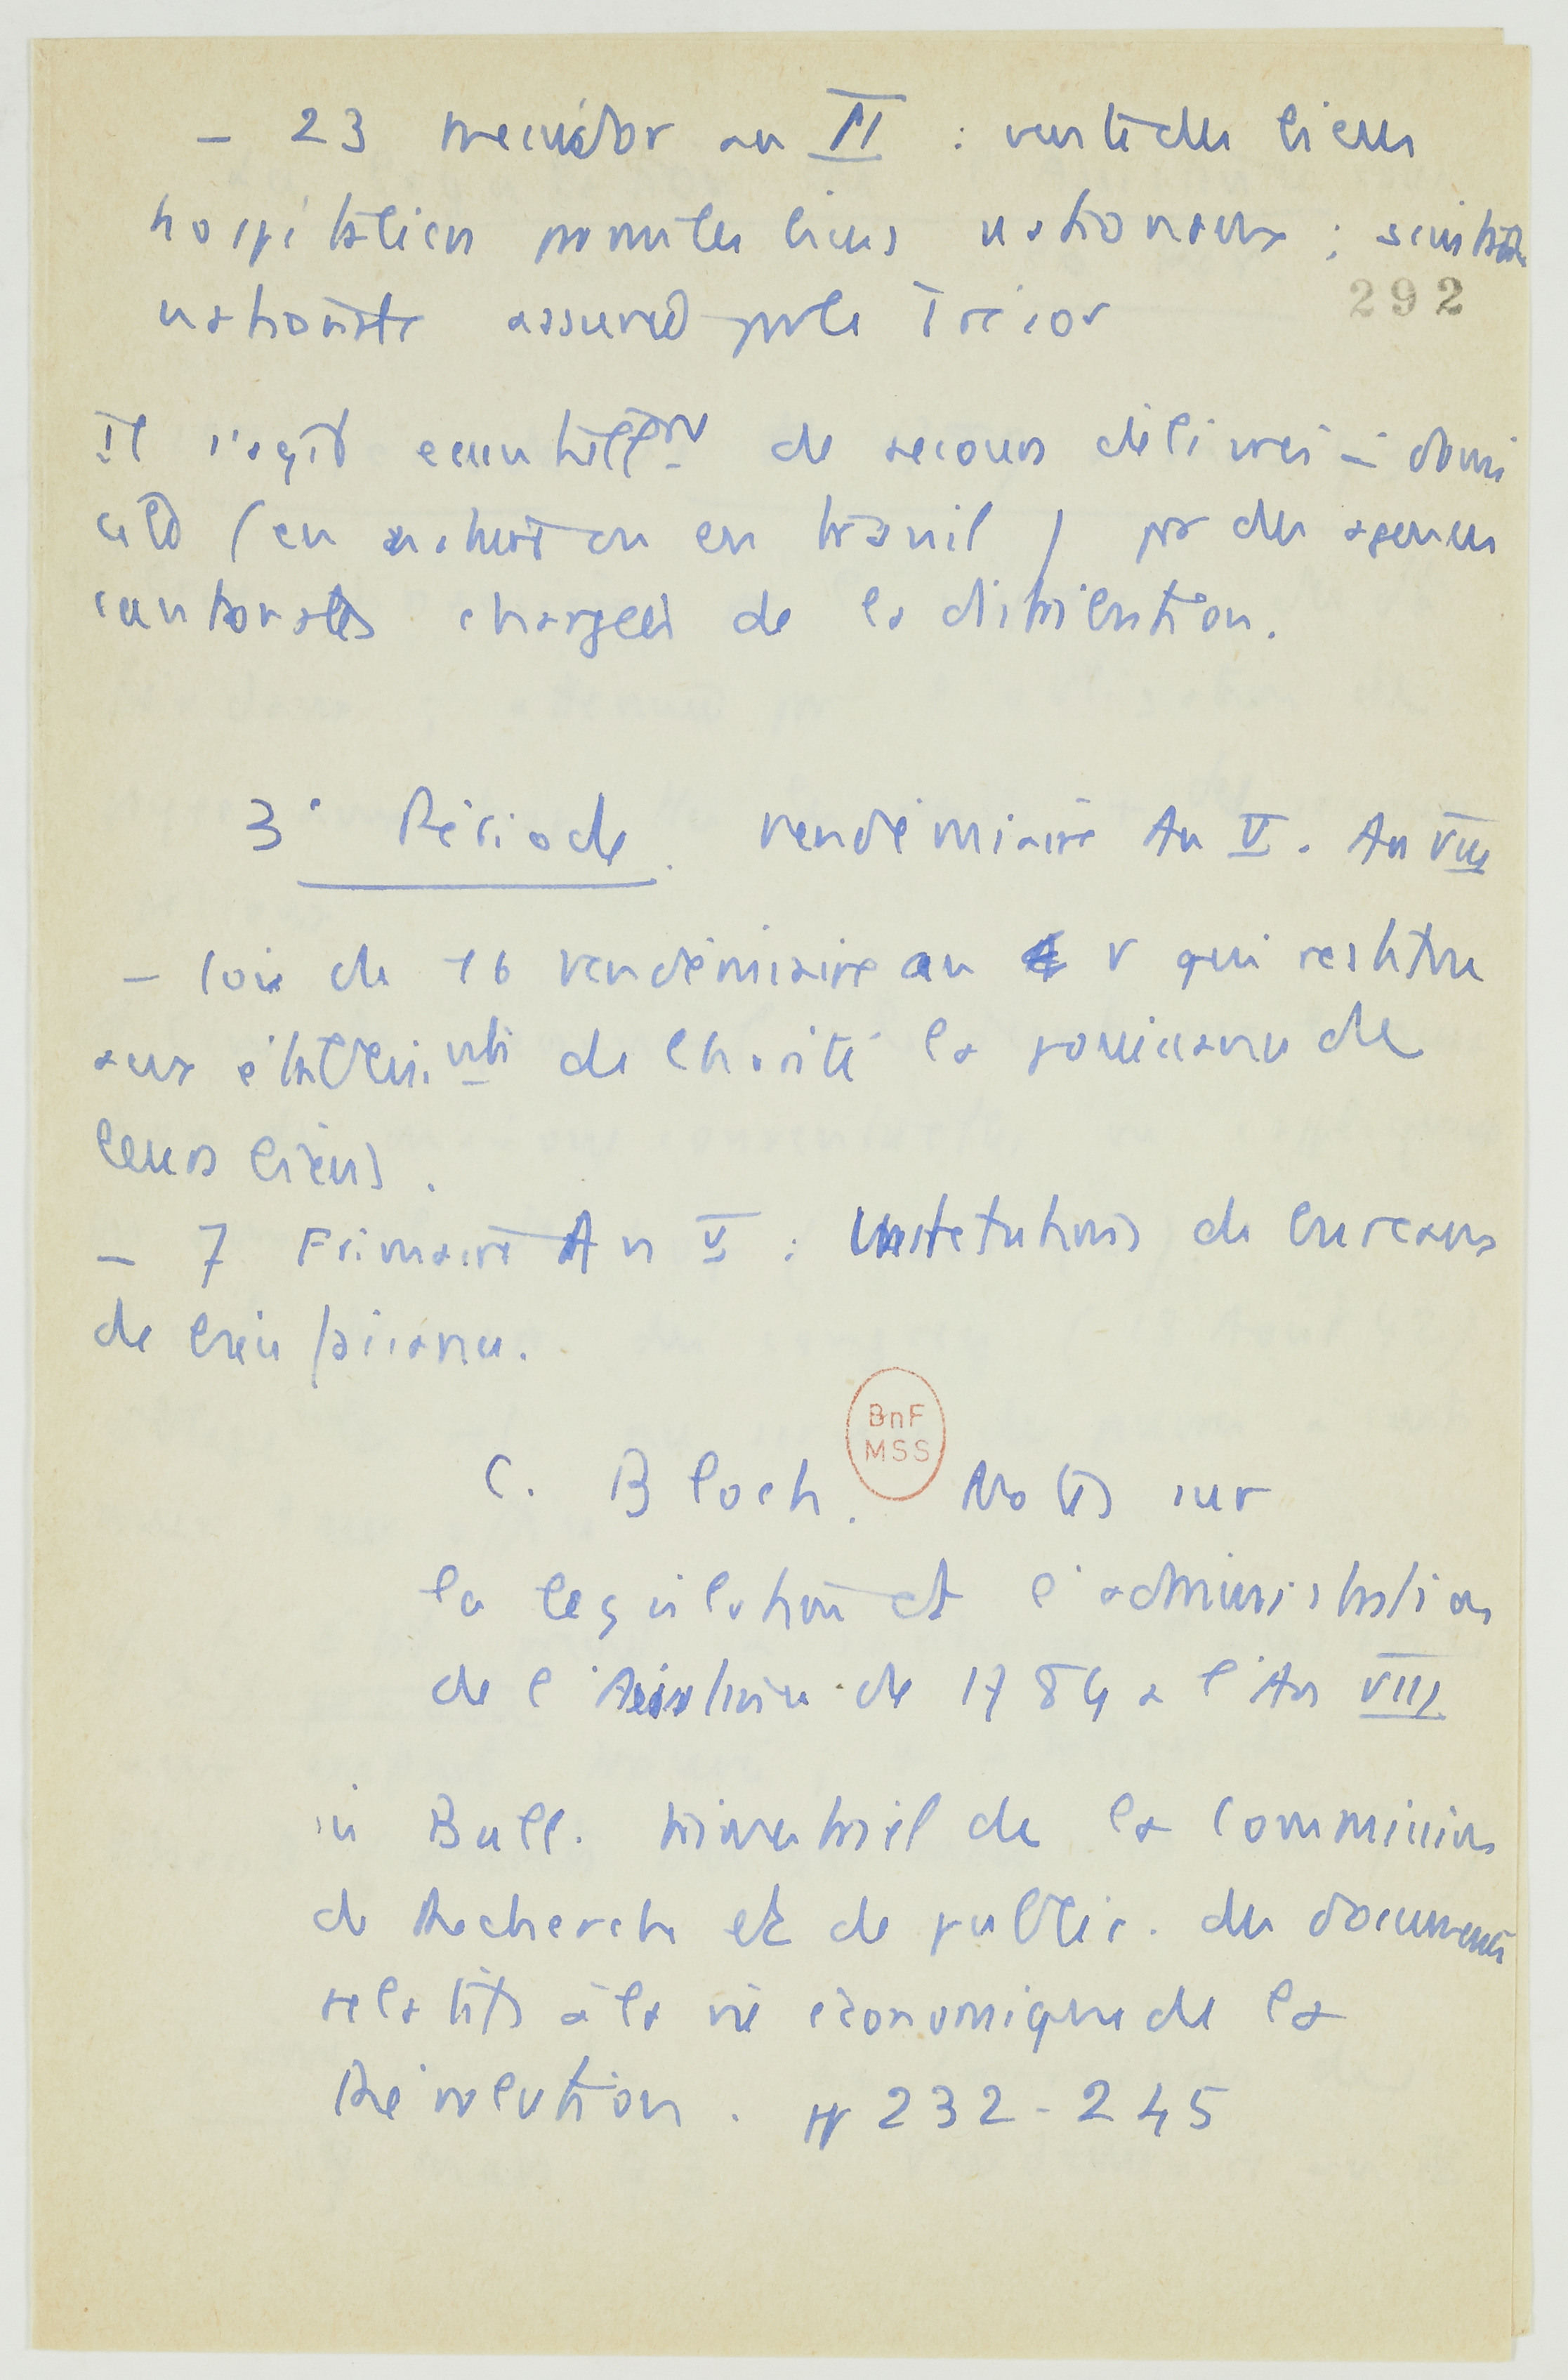 - 23 messidor an II : vente des biens
hospitaliers parmi les biens nationaux ; assistance
nationale assurée par le Trésor
292
Il s'agit essentiellement de secours délivrés à domi
cile (en nature ou en travail) par des agences
cantonales chargées de la distribution.
3° Période. Vendémiaire An V. An VIII
- loi de 16 vendémiaire an V qui restitue
aux établiss.nts de charité la jouissance de
leurs biens.
- 7 Frimaire An V : Institutions de bureaux
de bienfaisance.
BnF
MSS
C. Bloch. Notes sur
la législation et l'administration
de l'Assistance de 1789 à l'An VIII
in Bull. trimestriel de la Commission
de Recherche et de public. des documents
relatifs à la vie économique de la
Révolution. pp 232-245